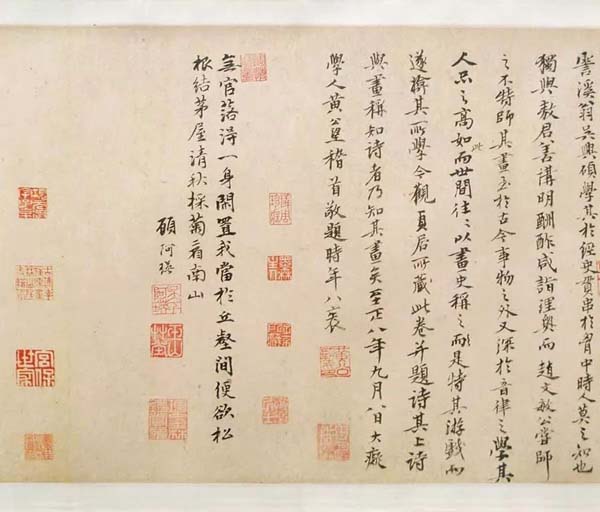 霅溪翁吳興碩學其於經史貫串於胷中時人莫之知也
獨與敖君善講明酬酢咸詣理奧而趙文敏公嘗師
之不特師其畫至於古今事物之外又深於音律之學其
人品之高如此而世間往〻以畫史稱之是特其游戲而
遂揜其所學今觀貞居所藏此卷并題詩其上詩
與畫稱知詩者乃知其畫矣至正八年九月八日大癡
學人黃公望稽首敬題時年八袠
無官落得一身閑置我當於丘壑間便欲松
根結茅屋清秋採菊看南山
顧阿瑛
宮保世家